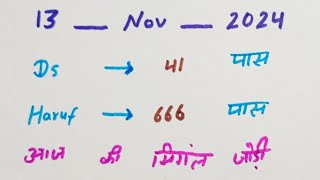 13 __ Nov __ 2024
Ds → 41 पास
Haruf → 666 पास
आज की सिंगल जोड़ी